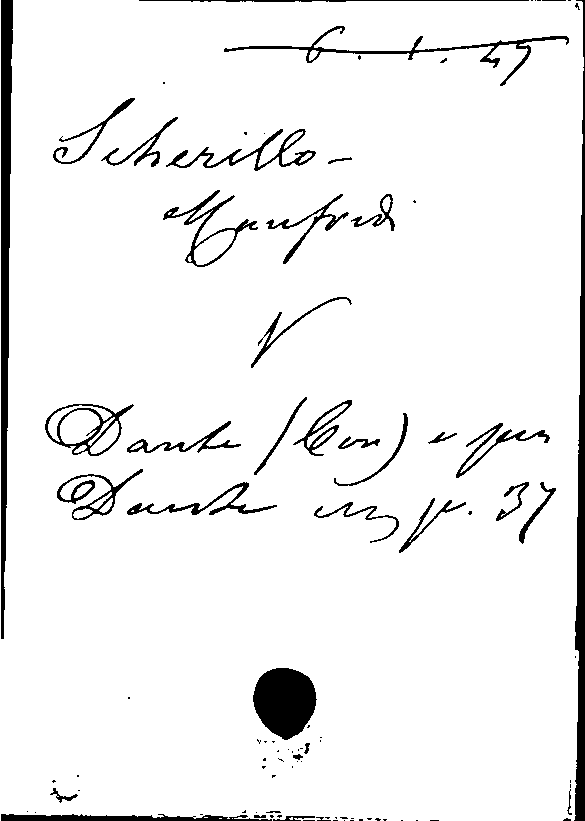 6.1.47
Scherillo -
Manfredi
V
Dante (Con) e per
Dante p. 37